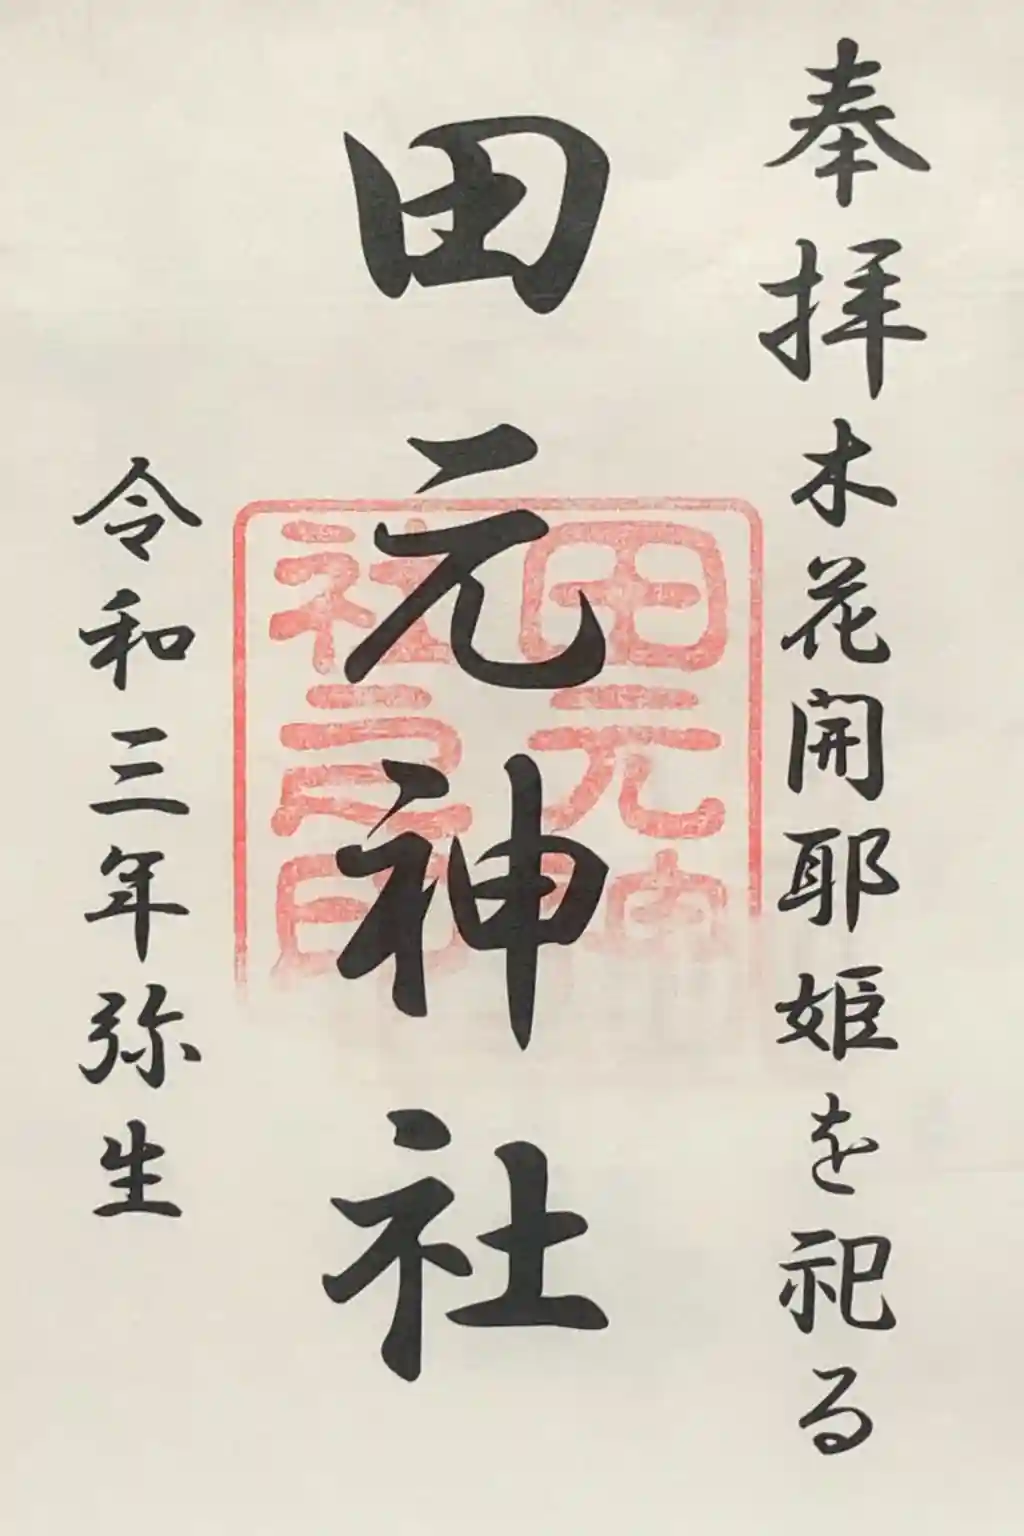 奉拝 木花開耶姫を祀る
田元神社
令和三年弥生
田元
社